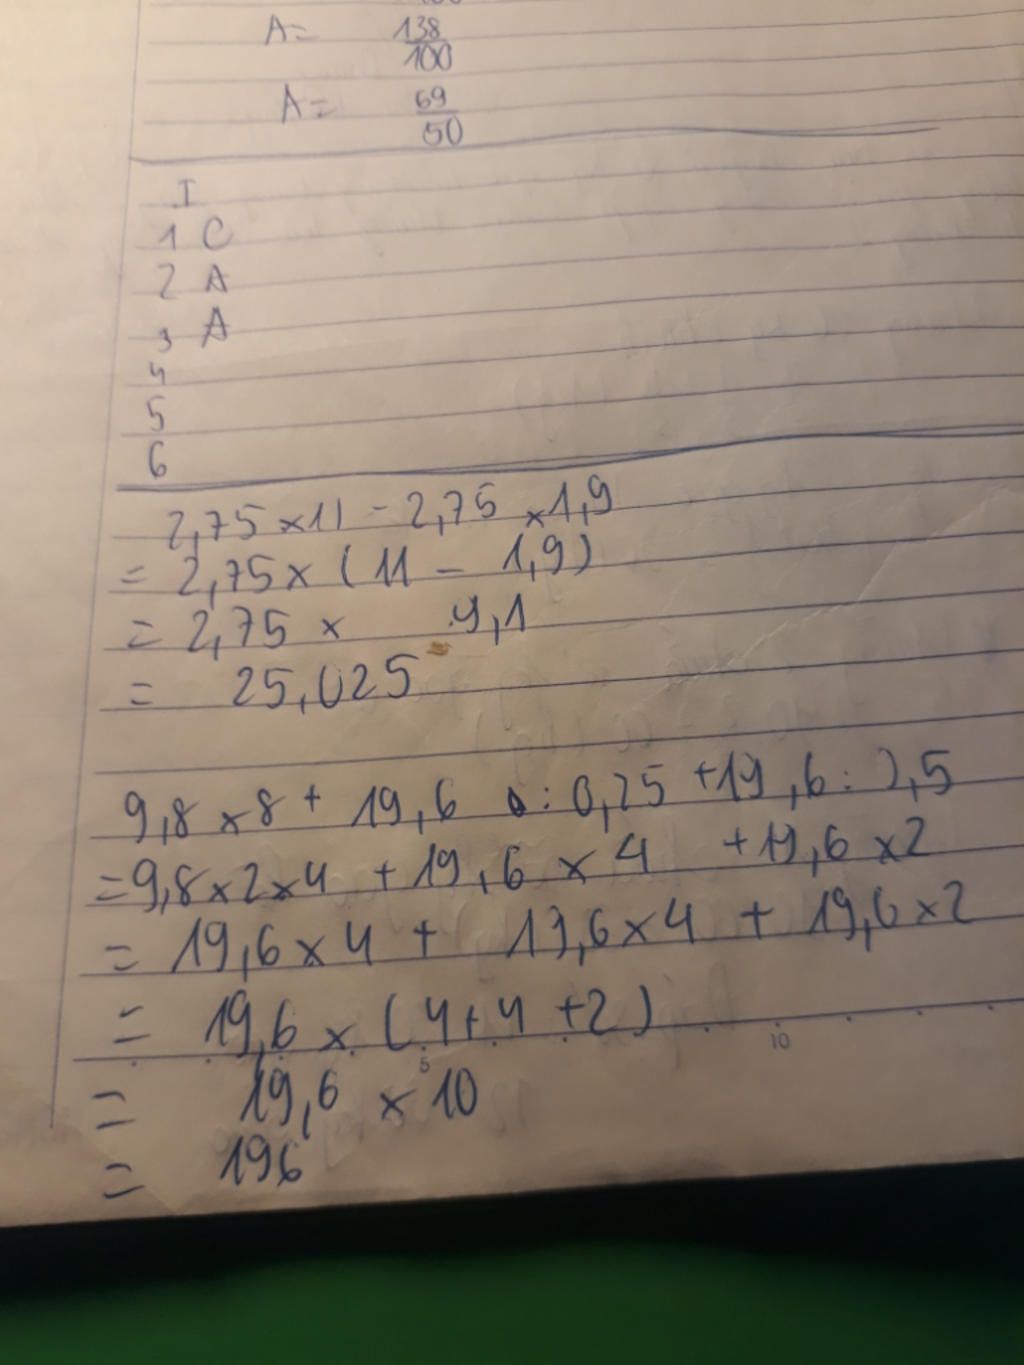 A= 138/100
A= 69/50
I
1 C
2 A
3 A
4
5
6
2,75 x 11 - 2,75 x 1,9
= 2,75 x (11 - 1,9)
= 2,75 x 9,1
= 25,025
9,8 x 8 + 19,6 : 0,25 + 19,6 : 2,5
= 9,8 x 2 x 4 + 19,6 x 4 + 19,6 x 2
= 19,6 x 4 + 19,6 x 4 + 19,6 x 2
= 19,6 x (4 + 4 + 2)
5 10
= 19,6 x 10
= 196